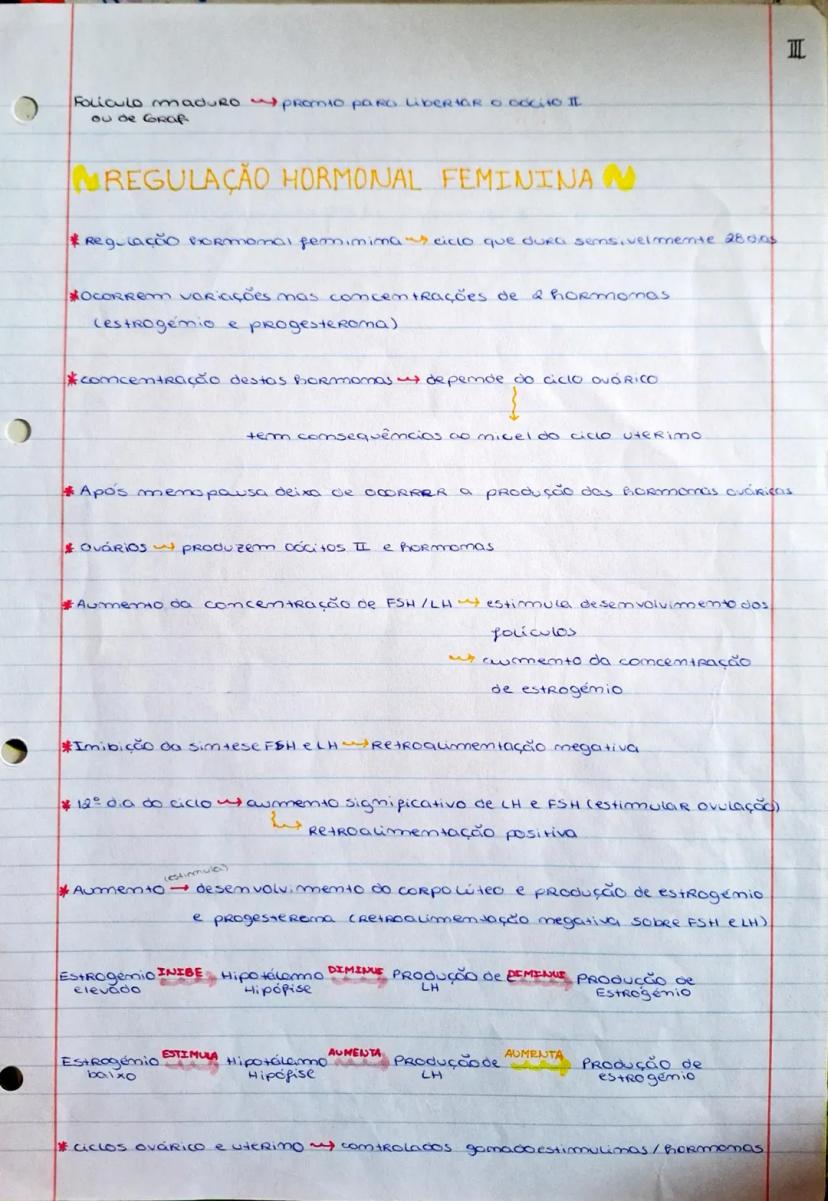 III
Folículo maduro → pronto para libertar o oócito II
ou de Graf
~ REGULAÇÃO HORMONAL FEMININA ~
* Regulação hormonal feminina → ciclo que dura sensivelmente 28 dias
* Ocorrem variações nas concentrações de 2 hormonas
(estrogénio e progesterona)
* concentração destas hormonas → depende do ciclo ovárico
↓
tem consequências ao nível do ciclo uterino
* Após menopausa deixa de ocorrer a produção das hormonas ováricas
* Ovários → produzem oócitos II e hormonas
* Aumento da concentração de FSH/LH → estimula desenvolvimento dos
folículos
→ aumento da concentração
de estrogénio
* Inibição da síntese FSH e LH → Retroalimentação negativa
* 12º dia do ciclo → aumento significativo de LH e FSH (estimular ovulação)
↳ Retroalimentação positiva
(estimula)
* Aumento → desenvolvimento do corpo lúteo e produção de estrogénio
e progesterona (retroalimentação negativa sobre FSH e LH)
Estrogénio INIBE → Hipotálamo DIMINUE → Produção de DEMINUE → Produção de
elevado Hipófise LH Estrogénio
Estrogénio ESTIMULA → Hipotálamo AUMENTA → Produção de AUMENTA → Produção de
baixo Hipófise LH estrogénio
* ciclos ovárico e uterino → controlados gonadoestimulinas / hormonas